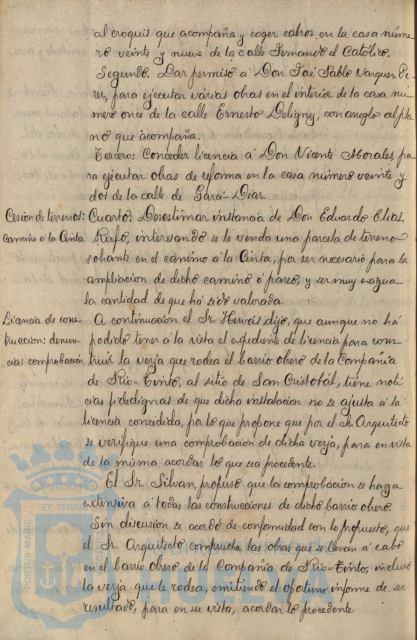 al croquis que acompaña y coger calros en la casa núme-
ro veinte y nueve de la calle Fernando el Católico.
Segundo. Dar permiso á Don José Pablo Vazquez Pe-
rez, para ejecutar varias obras en el interior de la casa nú-
mero once de la calle Ernesto Deligny, con arreglo al pla-
no que acompaña.
Tercero: Conceder licencia á Don Vicente Morales pa-
ra ejecutar obras de reforma en la casa número veinte y
dos de la calle de Garci-Diaz.
Cesión de terrenos: Cuarto: Desestimar instancia de Don Eduardo Elias
Camino á la Cinta. Rufo, interesando se le venda una parcela de terreno
sobrante en el camino á la Cinta, por ser necesario para la
ampliacion de dicho camino ó paseo, y ser muy exigua
la cantidad de que há sido valorada.
Licencia de cons- A continuacion el Sr. Hervás dijo, que aunque no há
truccion: denun- podido tener á la vista el expediente de licencia para cons-
cia: comprobación truir la verja que rodea el barrio obrero de la Compañía
de Rio-Tinto, al sitio de San Cristobál, tiene noti-
cias fidedignas de que dicha instalacion no se ajusta á la
licencia concedida, por lo que propone que por el Sr. Arquitecto
se verifique una comprobacion de dicha verja, para en vista
de la misma acordar lo que sea procedente.
El Sr. Silvan, propuso que la comprobacion se haga
extensiva á todas las construcciones de dicho barrio obrero.
Sin discusion se acordó de conformidad con lo propuesto, que
el Sr. Arquitecto compruebe las obras que se llevan á cabo
en el barrio obrero de la Compañía de Rio-Tinto, incluso
la verja que le rodea, emitiendo el oportuno informe de su
resultado, para en su vista, acordar lo procedente.
PORTUS MARIS ET TERRAE